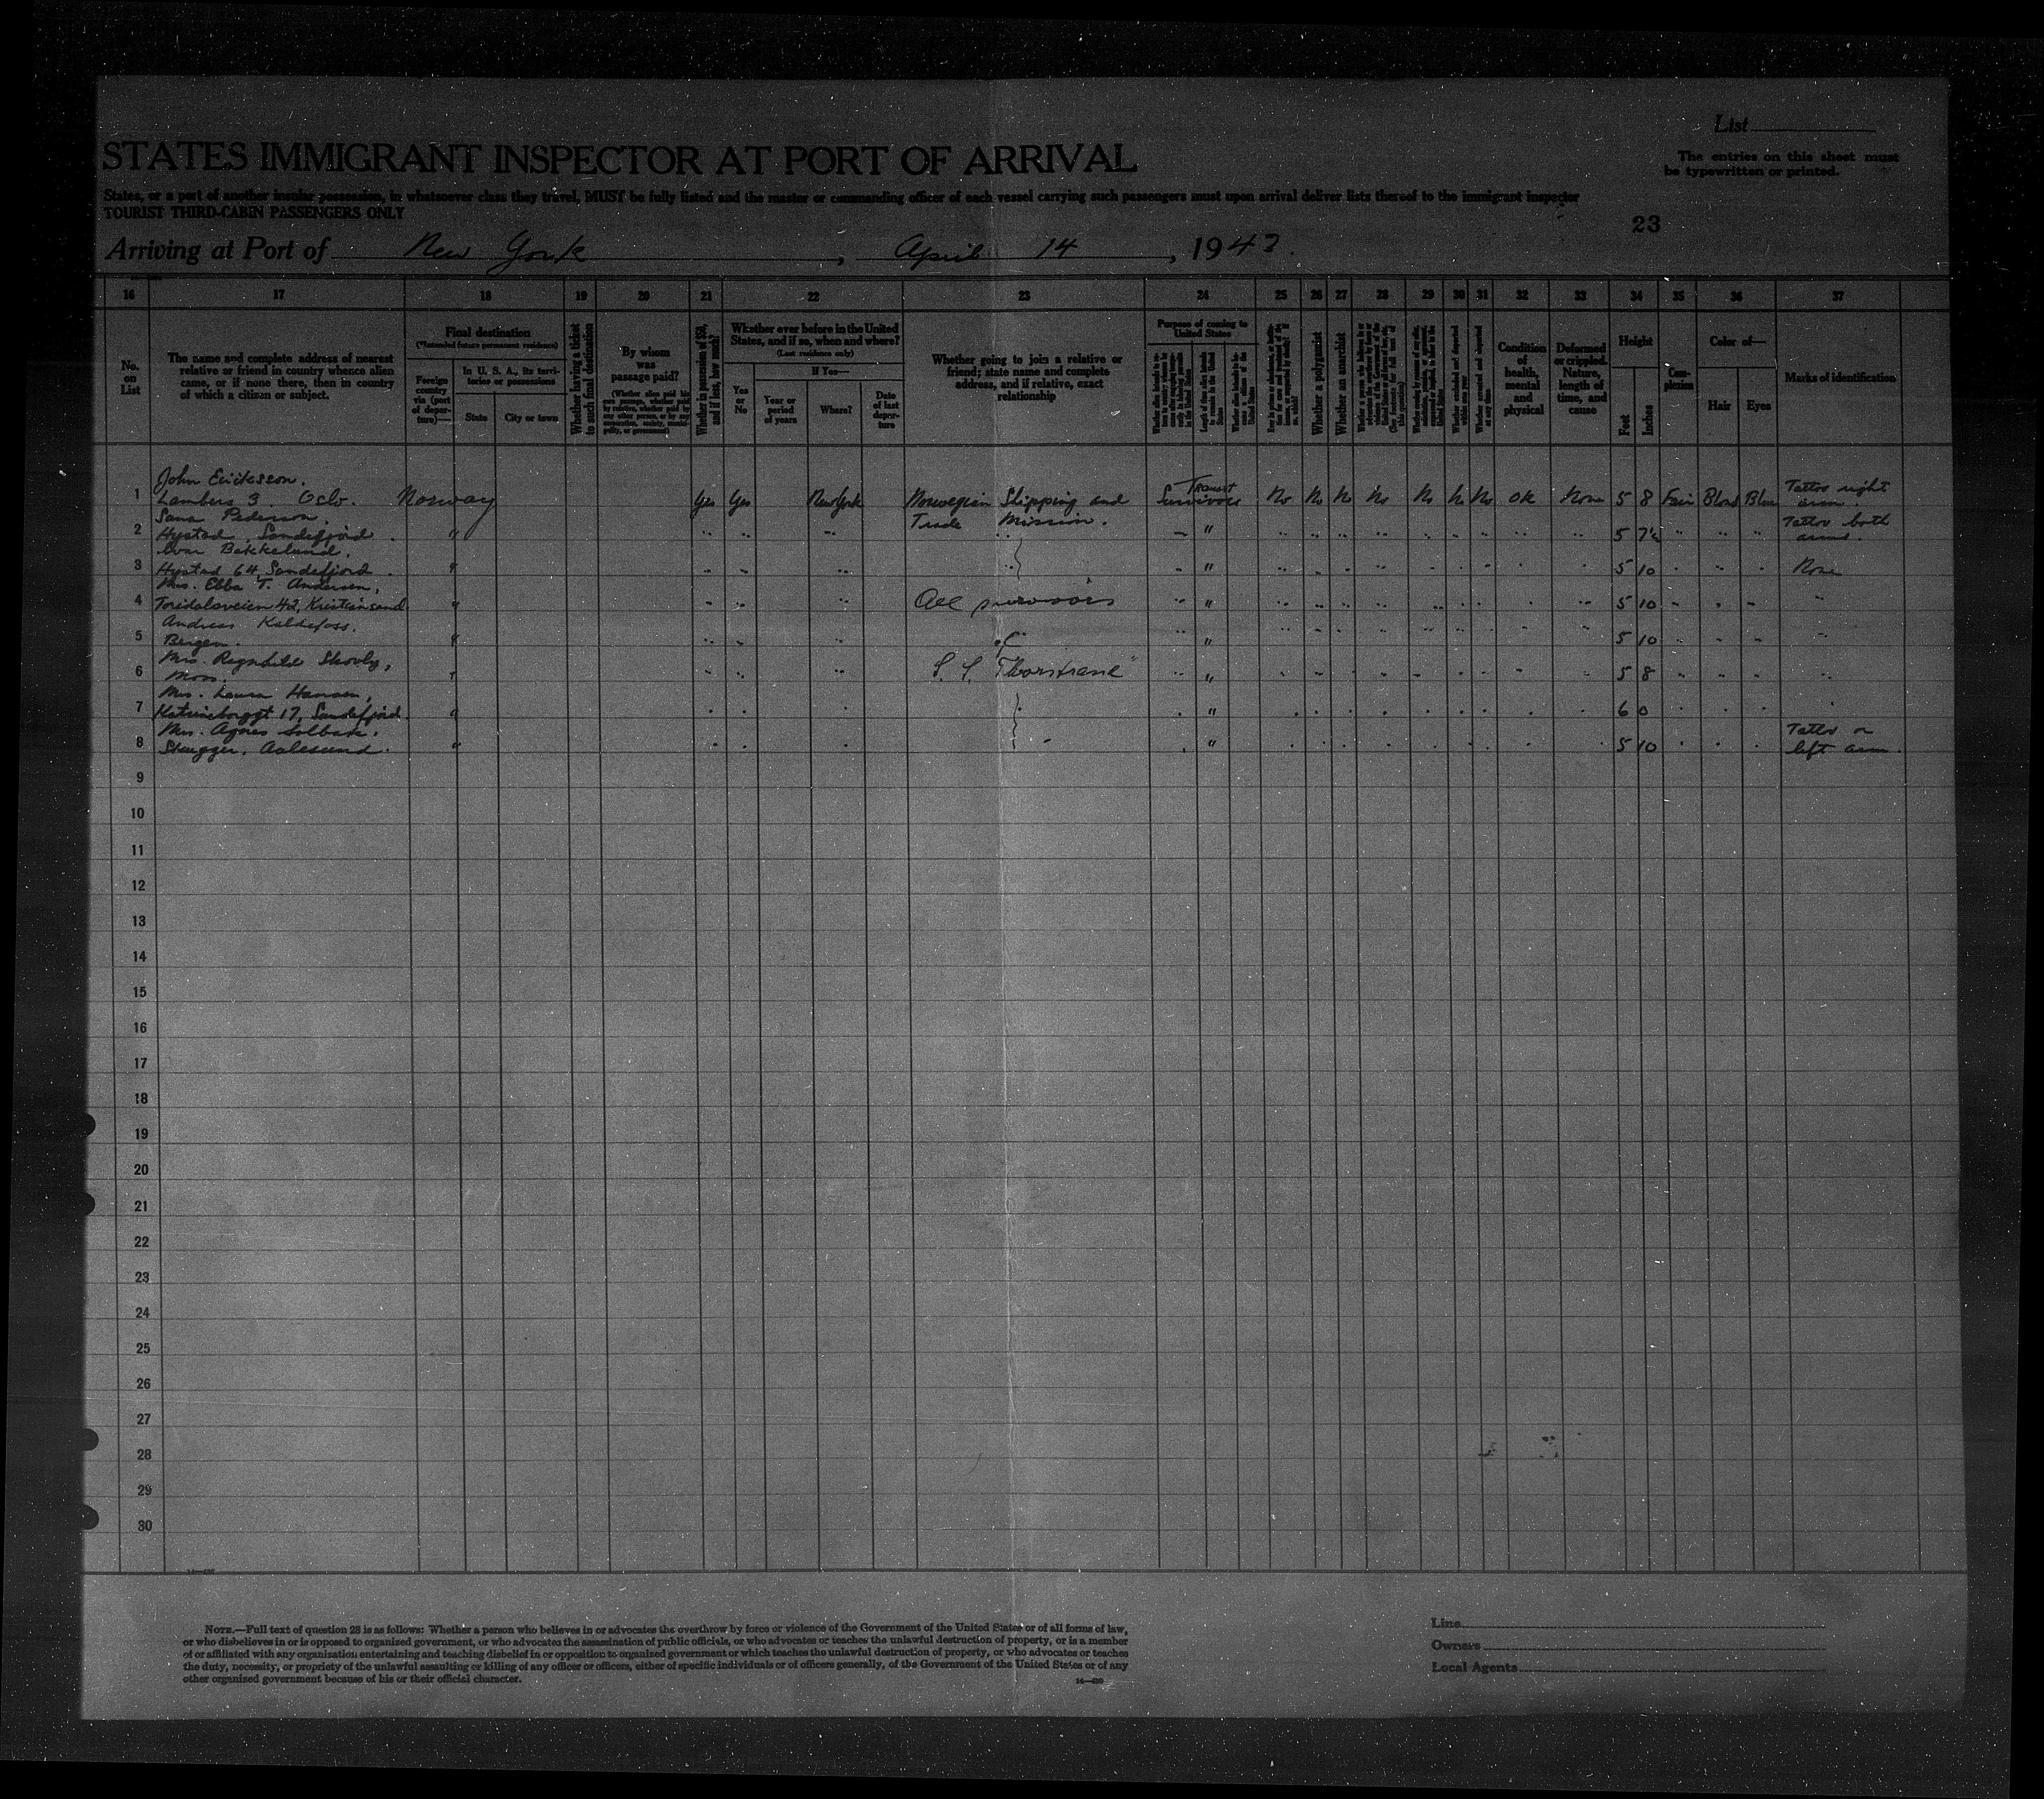 List
STATES IMMIGRANT INSPECTOR AT PORT OF ARRIVAL
The entries on this sheet must
be typewritten or printed.
States, or a port of another insular possession, in whatsoever class they travel, MUST be fully listed and the master or commanding officer of each vessel carrying such passengers must upon arrival deliver lists thereof to the immigrant inspector
TOURIST THIRD-CABIN PASSENGERS ONLY
23
Arriving at Port of New York, April 14, 1943.
16 17 18 19 20 21 22 23 24 25 26 27 28 29 30 31 32 33 34 35 36 37
No. on List
The name and complete address of nearest relative or friend in country whence alien came, or if none there, then in country of which a citizen or subject.
Final destination
(*Intended future permanent residence)
Foreign country via (port of departure)—
In U. S. A., its territories or possessions
State
City or town
Whether having a ticket to such final destination
By whom was passage paid?
(Whether alien paid his own passage, whether paid by relative, whether paid by any other person, or by any corporation, society, municipality, or government)
Whether in possession of $50, and if less, how much?
Whether ever before in the United States, and if so, when and where?
(Last residence only)
Yes or No
If Yes—
Year or period of years
Where?
Date of last departure
Whether going to join a relative or friend; state name and complete address, and if relative, exact relationship
Purpose of coming to United States
Whether a polygamist
Whether an anarchist
Condition of health, mental and physical
Deformed or crippled. Nature, length of time, and cause
Height
Feet
Inches
Complexion
Color of—
Hair
Eyes
Marks of identification
John Ericksson.
1 Lambers 3. Oslo. Norway Yes Yes New York Norwegian Shipping and Transit Survivors No No No No No No No OK None 5 8 Fair Blond Blue Tattoo right arm.
Pederson. Trade Mission.
2 Hystad, Sandefjord. " " " " " 5 7½ " " " Tattoo both arms.
Bekkelund.
3 Hystad 64, Sandefjord. " " " " " 5 10 " " " None
Mrs. Ebba T. Andersen,
4 Toridalsveien 42, Kristiansand " " " " All survivors " 5 10 " " " "
Andreas Kaldefoss.
5 Bergen. " " " " of " 5 10 " " " "
Mrs. Ragnhild Skovly,
6 Moss. " " " " S. S. "Thorstrand" " 5 8 " " " "
Mrs. Laura Hansen,
7 Katrineborggt 17, Sandefjord. " " " " " 6 0 " " " "
Mrs. Agnes Solbakk.
8 Aalesund. " " " " " 5 10 " " " Tattoo on left arm.
9
10
11
12
13
14
15
16
17
18
19
20
21
22
23
24
25
26
27
28
29
30
NOTE.—Full text of question 28 is as follows: Whether a person who believes in or advocates the overthrow by force or violence of the Government of the United States or of all forms of law,
or who disbelieves in or is opposed to organized government, or who advocates the assassination of public officials, or who advocates or teaches the unlawful destruction of property, or is a member
of or affiliated with any organization entertaining and teaching disbelief in or opposition to organized government or which teaches the unlawful destruction of property, or who advocates or teaches
the duty, necessity, or propriety of the unlawful assaulting or killing of any officer or officers, either of specific individuals or of officers generally, of the Government of the United States or of any
other organized government because of his or their official character.
Line
Owners
Local Agents